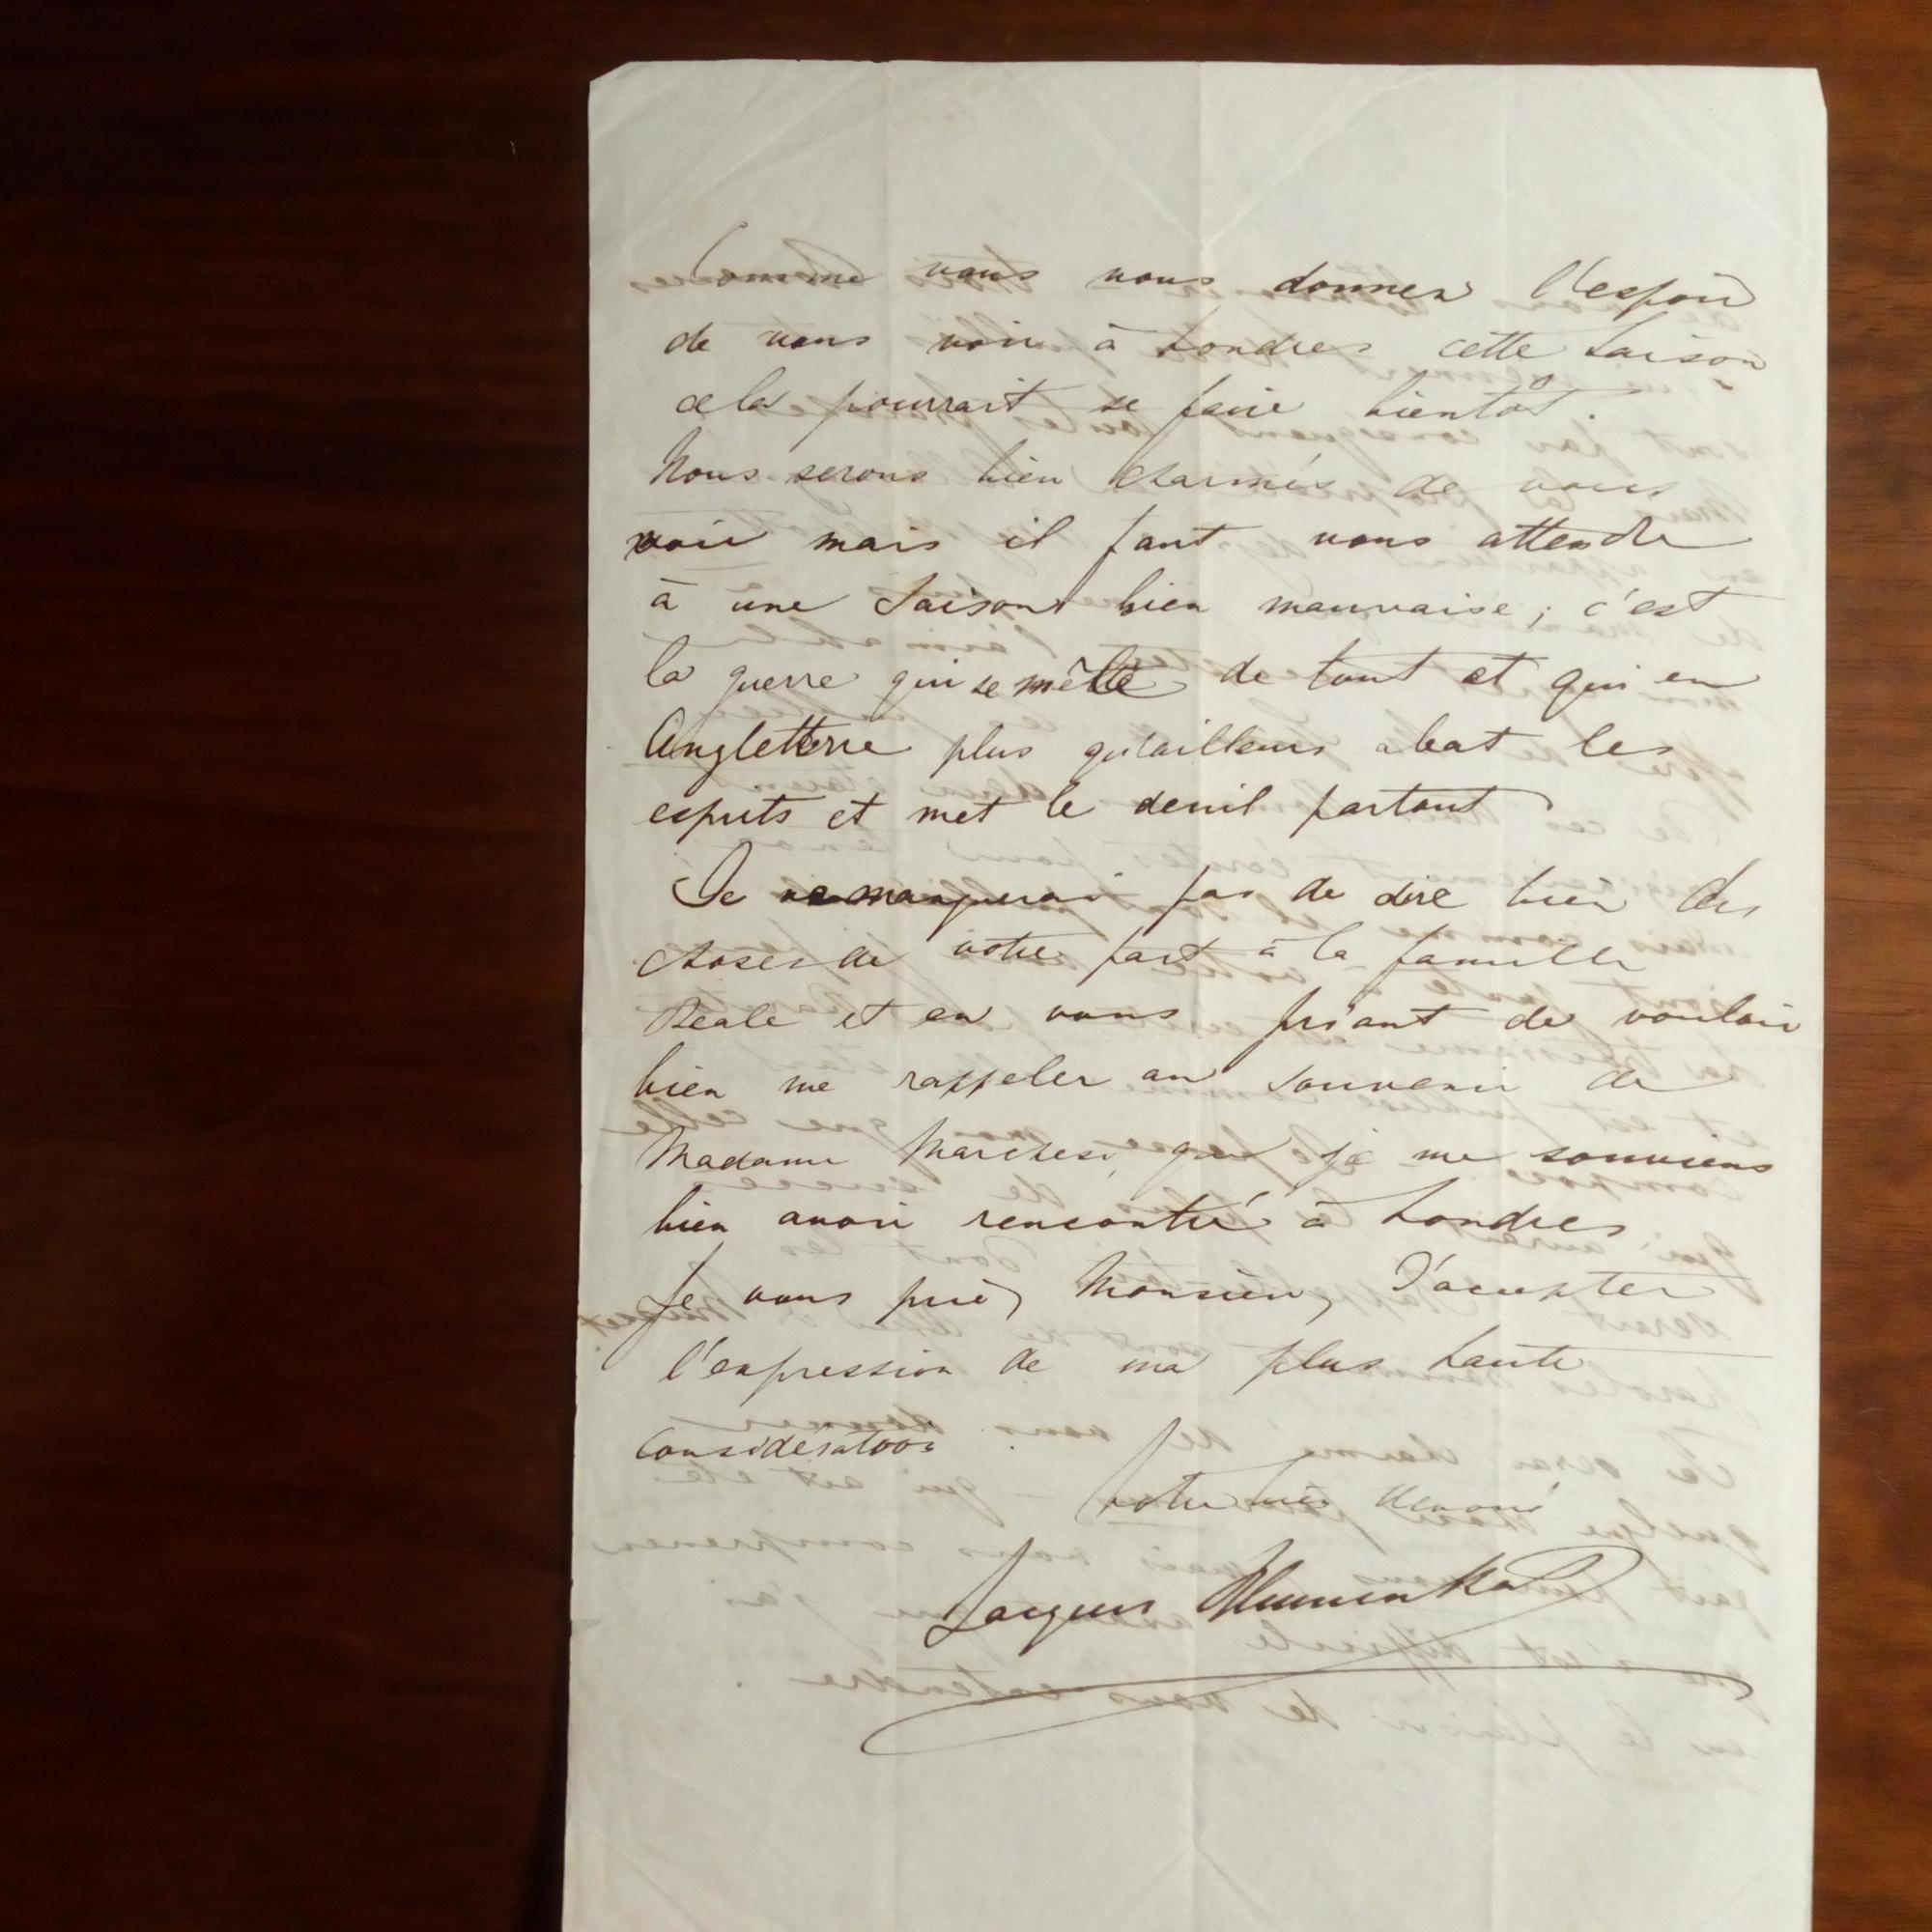 Comme vous nous donnez l'espoir
de vous voir à Londres cette Saison
cela pourrait se faire bientôt.
Nous serons bien charmés de vous
voir mais il faut vous attendre
à une Saison bien mauvaise; c'est
la guerre qui se mêlle de tout et qui en
Angleterre plus qu'ailleurs abat les
esprits et met le deuil partout
Je ne manquerai pas de dire bien des
choses de votre part à la famille
Beale et en vous priant de vouloir
bien me rappeler au souvenir de
Madame Marchesi, que je me souviens
bien avoir rencontré à Londres
Je vous prie, Monsieur, d'accepter
l'expression de ma plus haute
Considération
Votre très dévoué
Jacques Blumenthal